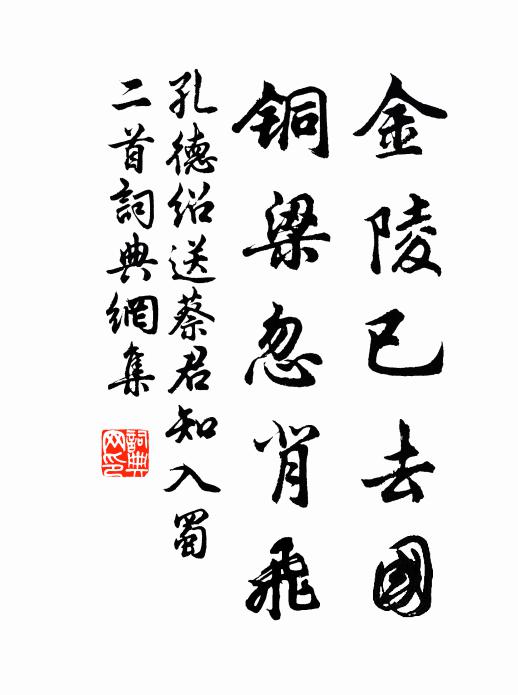 金陵已去國
铜梁忽背飛
孔德绍送蔡君知入蜀
二首詞典網集
詞典
网印